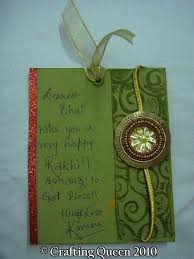 Dearest
Bhai
Wish you a
very happy
Rakhi!!
to
God Bless!!
Hugs & Love
Karuna
© Crafting Queen 2010